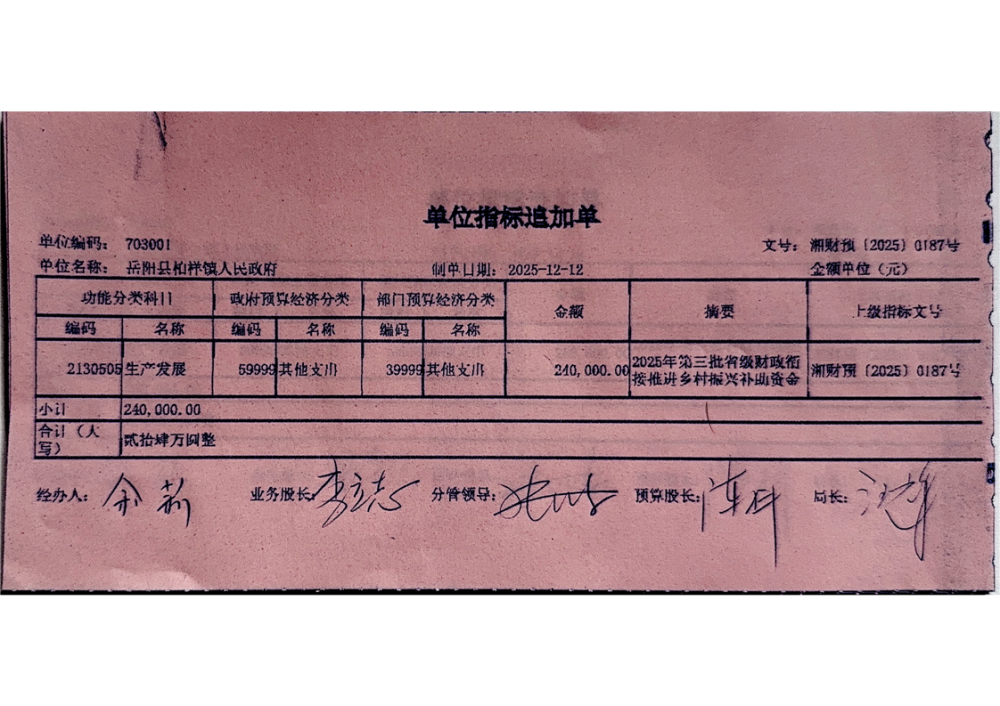 单位指标追加单
单位编码： 703001 文号： 湘财预〔2025〕0187号
单位名称： 岳阳县柏祥镇人民政府 制单日期： 2025-12-12 金额单位（元）
功能分类科目 政府预算经济分类 部门预算经济分类 金额 摘要 上级指标文号
编码 名称 编码 名称 编码 名称
2130505 生产发展 59999 其他支出 39999 其他支出 240,000.00 2025年第三批省级财政衔 湘财预〔2025〕0187号
接推进乡村振兴补助资金
小计 240,000.00
合计（大 贰拾肆万圆整
写）
经办人： 余莉 业务股长： 李立志 分管领导： 预算股长： 局长：